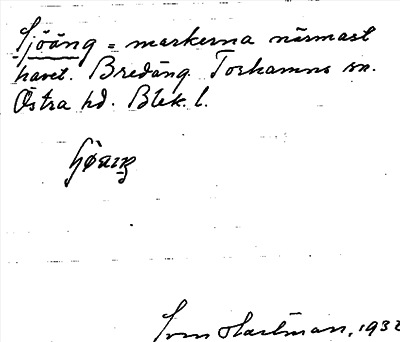 Sjöäng = markerna närmast
havet. Bredäng. Torhamns sn.
Östra hd. Blek. l.
Sven Hartman, 193